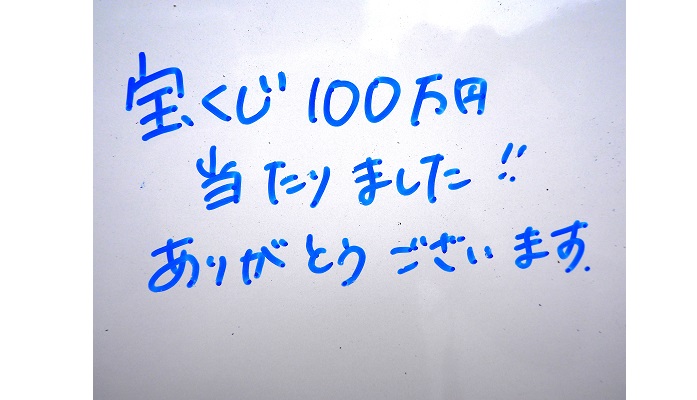 宝くじ100万円
当たりました!!
ありがとうございます.